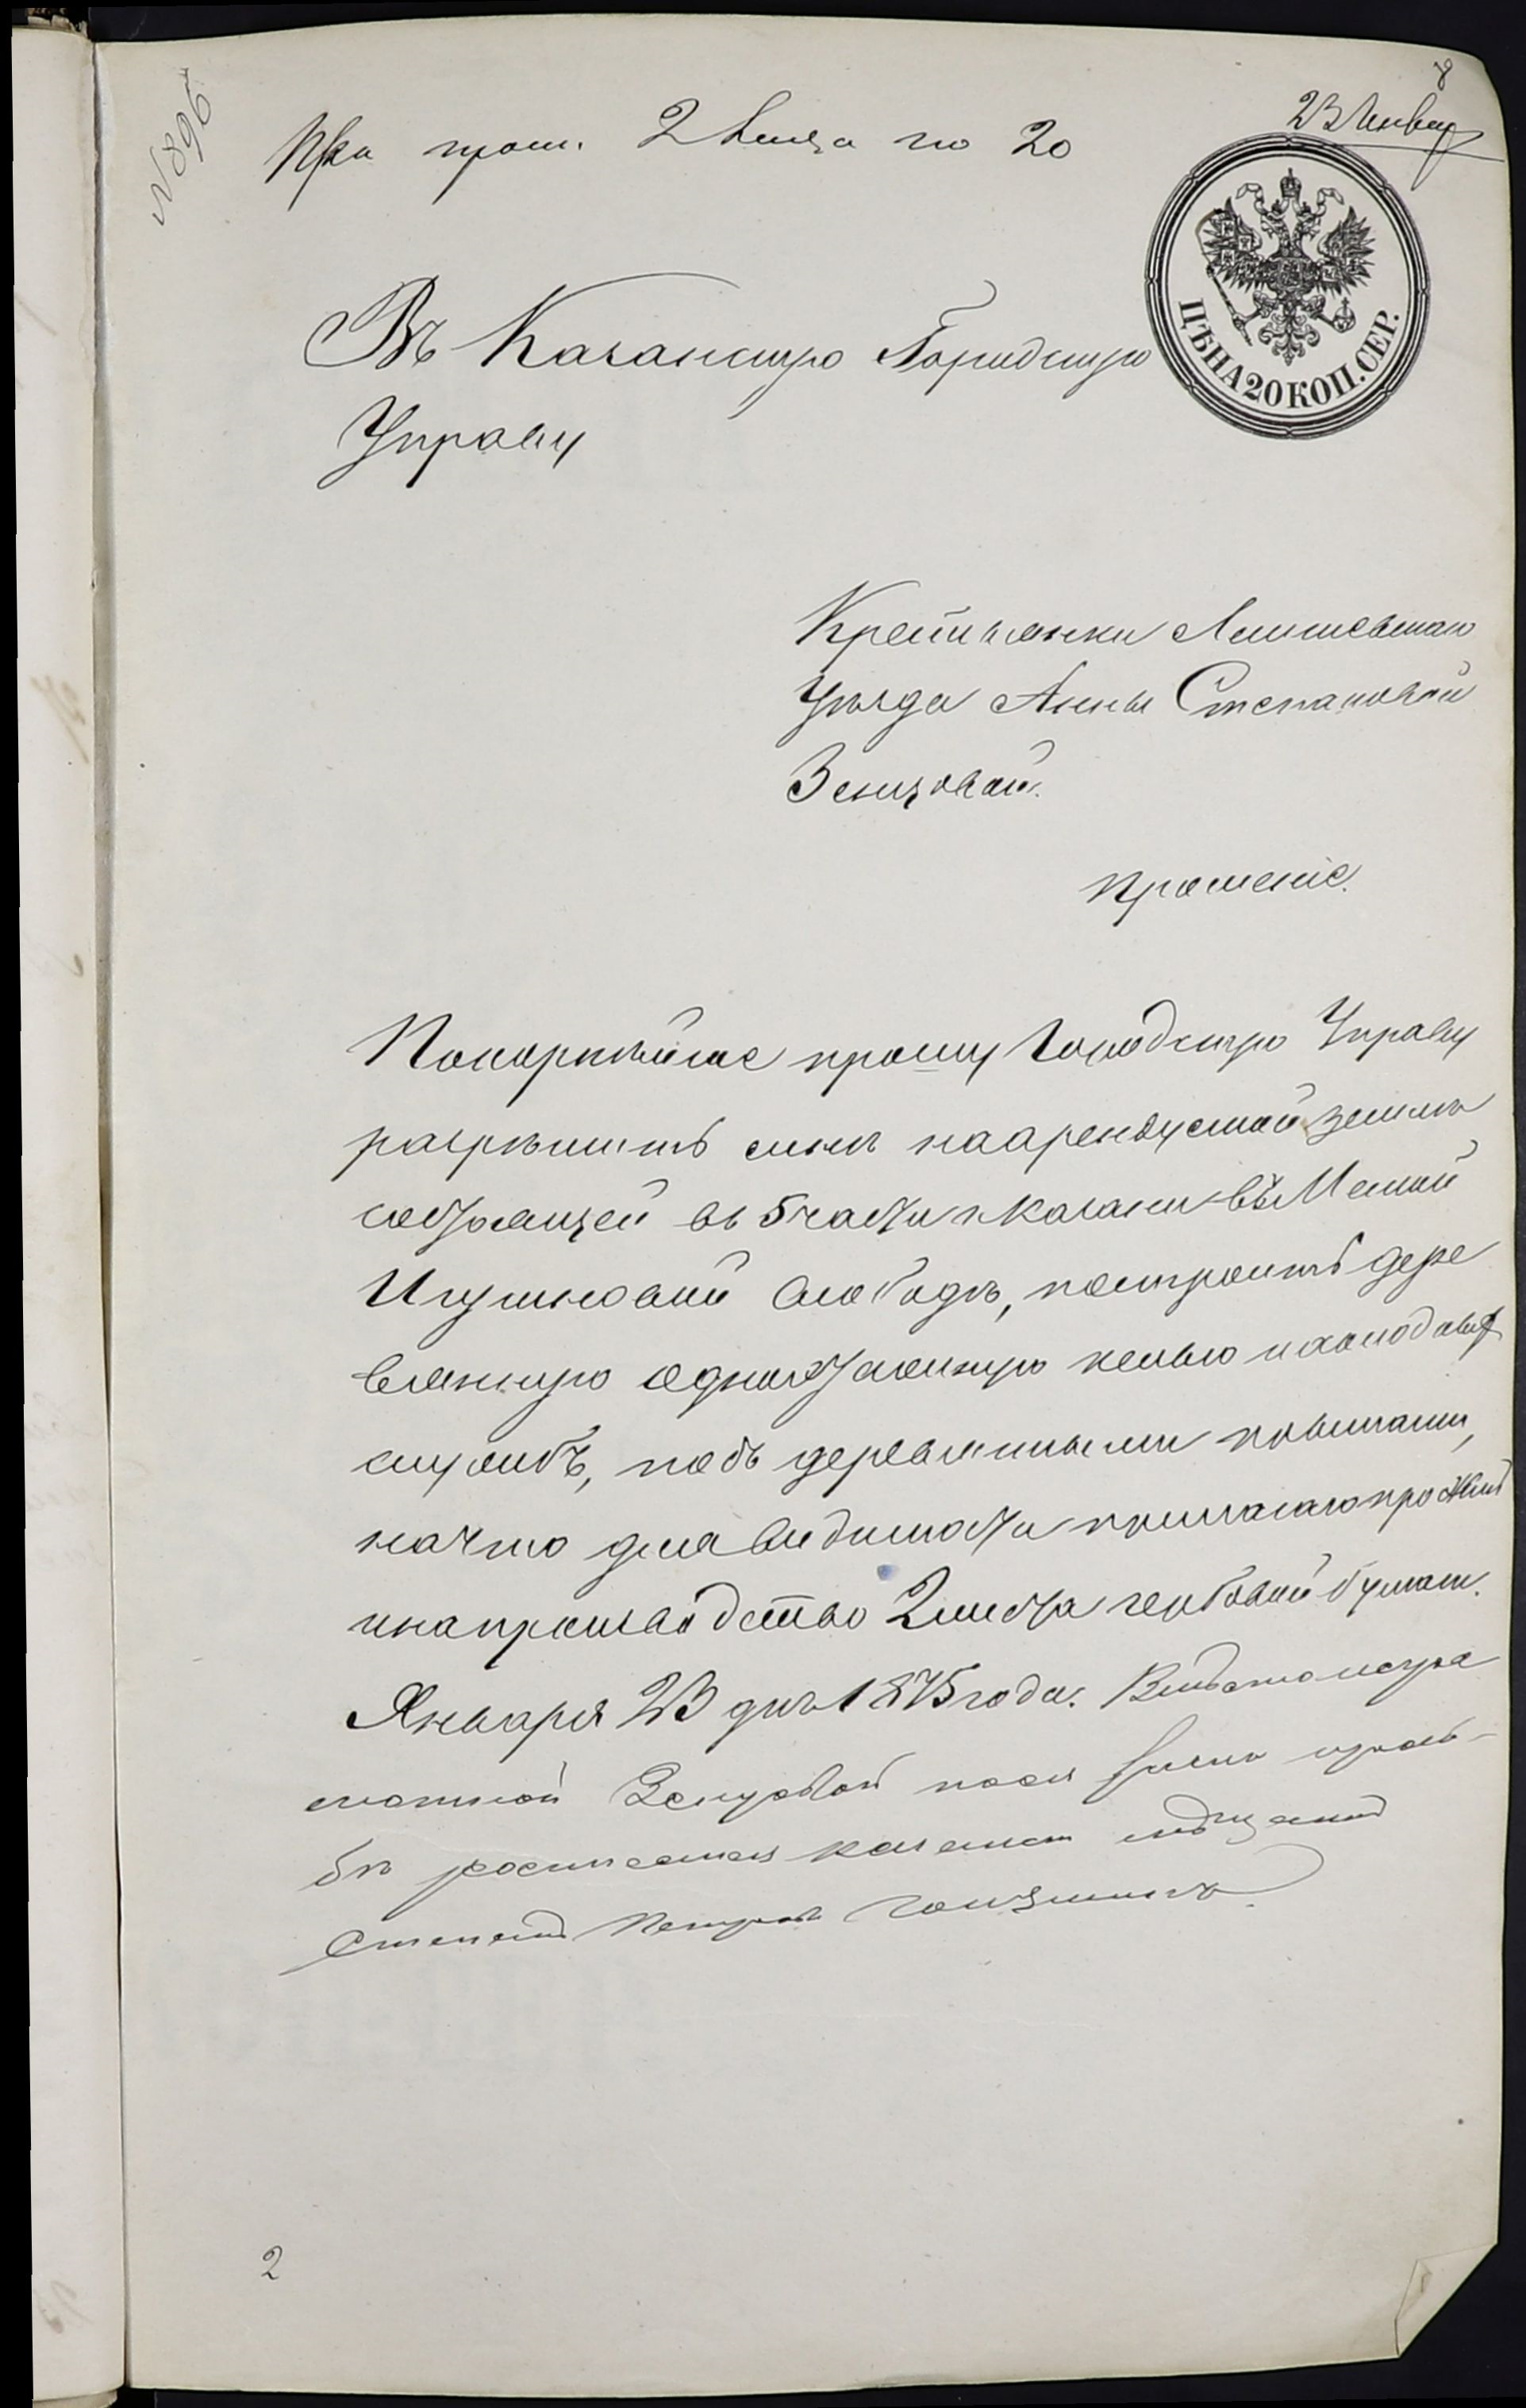 8
23 Январ
№ 896
При прош. 2 листа по 20
ЦѢНА 20 КОП. СЕР.
Въ Казанскую Городскую
Управу
Крестьянки Лаишевскаго
Уѣзда Анны Степановой
Зенцовой.
прошеніе.
Покорнѣйше прошу Городскую Управу
разрѣшить мнѣ наарендуемой землѣ
состоящей въ 5 части г. Казани въ Малой
Игумновой слободѣ, построить дере
вянную одноэтажную келью и холодныхъ
службъ, подъ деревянными крышами,
начто для видимости прилагаю проэктъ
инапроизводство 2 листа гербовой бумаги.
Января 23 дня 1875 года. Вмѣсто неграмотной
Зенцовой по ея личной прось-
бѣ росписался казанской мѣщанинъ
Степанъ Петровъ
2